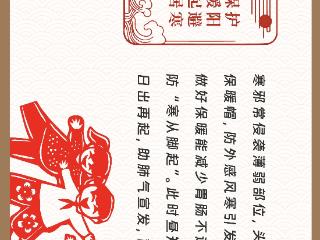 保护
暖阳
起避
居寒
寒邪常侵袭薄弱部位，头
保暖帽，防外感风寒引发
做好保暖能减少胃肠不适
防“寒从脚起”。此时昼短
日出再起，助肺气宣发，